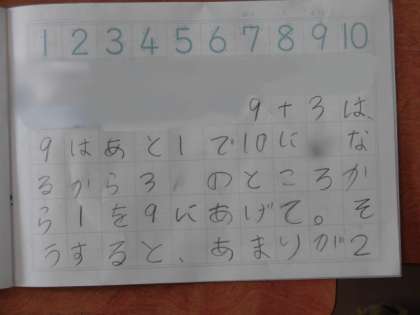 1 2 3 4 5 6 7 8 9 10
9+3は、
9はあと1で10にな
るから3のところか
ら1を9にあげて。そ
うすると、あまりが2